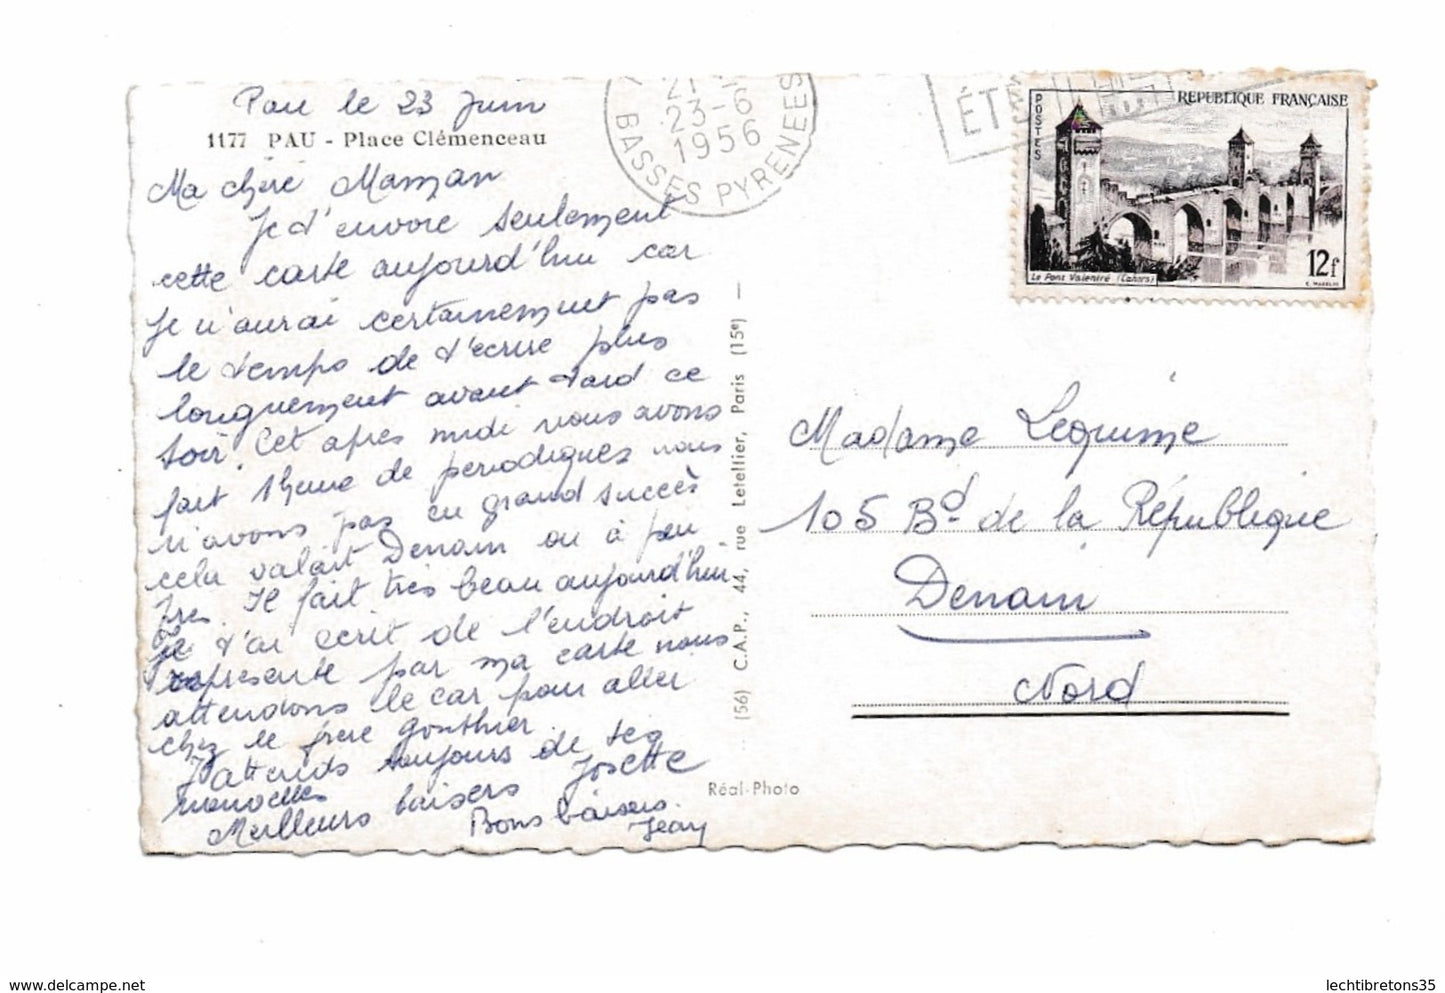 Pau le 23 Juin
1177 PAU - Place Clémenceau
Ma chère Maman
Je t'envoie seulement
cette carte aujourd'hui car
je n'aurai certainement pas
le temps de t'écrire plus
longuement avant tard ce
soir. Cet après midi nous avons
fait 1 heure de periodiques nous
n'avons pas eu grand succès
cela valait Denain ou à peu
près. Il fait très beau aujourd'hui.
Je t'ai écrit de l'endroit
représenté par ma carte nous
attendons le car pour aller
chez le frère Gonthier.
J'attends toujours de tes
nouvelles
Meilleurs baisers Josette
Bons baisers.
Jean
(56) C.A.P., 44, rue Letellier, Paris (15e) —
Réal-Photo
23-6
1956
BASSES PYRENEES
ÉTÉ
POSTES
REPUBLIQUE FRANÇAISE
Le Pont Valentré (Cahors)
12f
C. MAZELIN
Madame Lequime
105 Bd de la République
Denain
Nord
www.delcampe.net
lechtibretons35